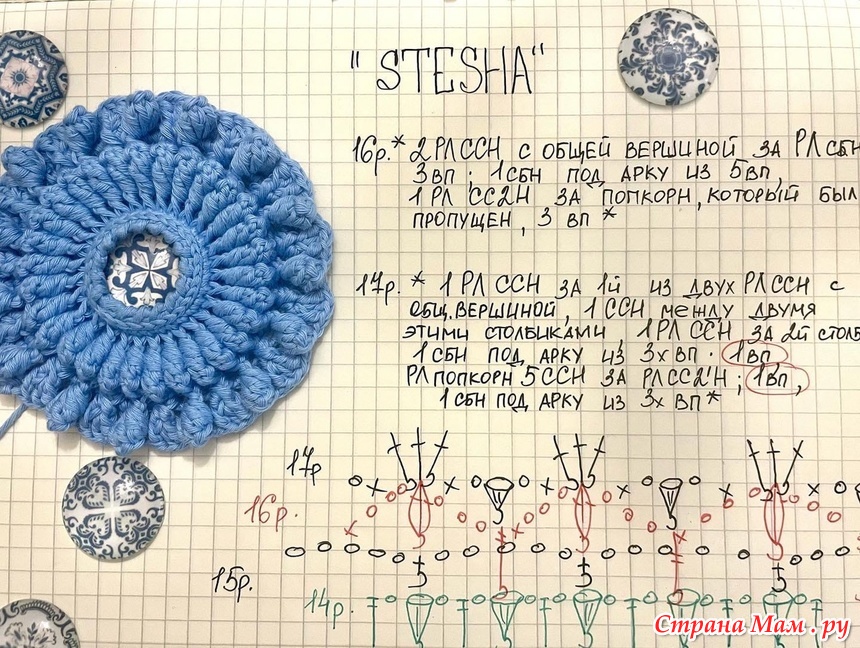 "STESHA"
16р.* 2 РЛ ССН С ОБЩЕЙ ВЕРШИНОЙ ЗА РЛ СБН
3 ВП ; 1 СБН ПОД АРКУ ИЗ 5 ВП,
1 РЛ СС2Н ЗА ПОПКОРН, КОТОРЫЙ БЫЛ
ПРОПУЩЕН, 3 ВП *
17р. * 1 РЛ ССН ЗА 1й ИЗ ДВУХ РЛ ССН С
ОБЩ. ВЕРШИНОЙ, 1 ССН МЕЖДУ ДВУМЯ
ЭТИМИ СТОЛБИКАМИ, 1 РЛ ССН ЗА 2й СТОЛБ
1 СБН ПОД АРКУ ИЗ 3х ВП · 1ВП,
РЛ ПОПКОРН 5 ССН ЗА РЛ СС2Н ; 1ВП,
1 СБН ПОД АРКУ ИЗ 3х ВП *
17р
16р.
15р.
14р.
Страна Мам.ру